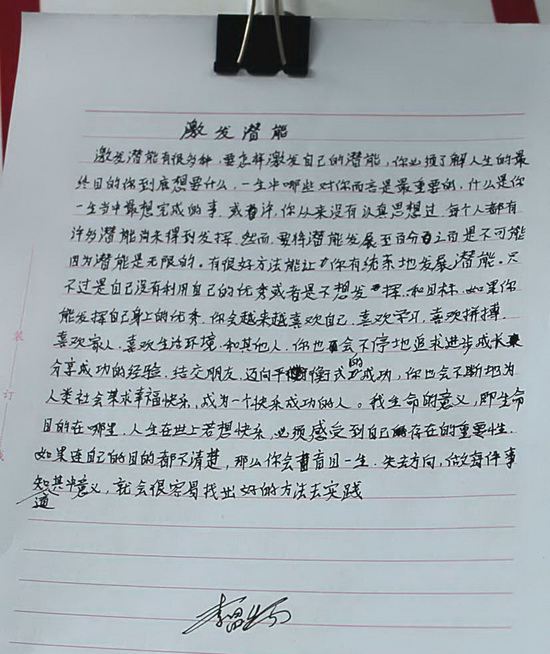 激发潜能
激发潜能有很多种，要怎样激发自己的潜能，你必须了解人生的最
终目的你到底想要什么，一生中哪些对你而言是最重要的，什么是你
一生当中最想完成的事，或者许，你从来没有认真思想过，每个人都有
许多潜能尚未得到发挥，然而，要将潜能发展至百分百之百是不可能
因为潜能是无限的。有很好方法能让你有结束地发展潜能。只
不过是自己没有利用自己的优秀或者是不想发挥，和目标，如果你
能发挥自己身上的优秀，你会越来越喜欢自己，喜欢学习，喜欢拼搏
喜欢家人，喜欢生活环境，和其他人，你也会不停地追求进步成长
分享成功的经验，结交朋友，迈向平衡式的成功，你也会不断地为
人类社会谋求幸福快乐，成为一个快乐成功的人。我生命的意义，即生命
目的在哪里，人生在世上若想快乐，必须感受到自己存在的重要性，
如果连自己的目的都不清楚，那么你会盲目一生，失去方向，做每件事
知道其中意义，就会很容易找出好的方法去实践
装
订
线